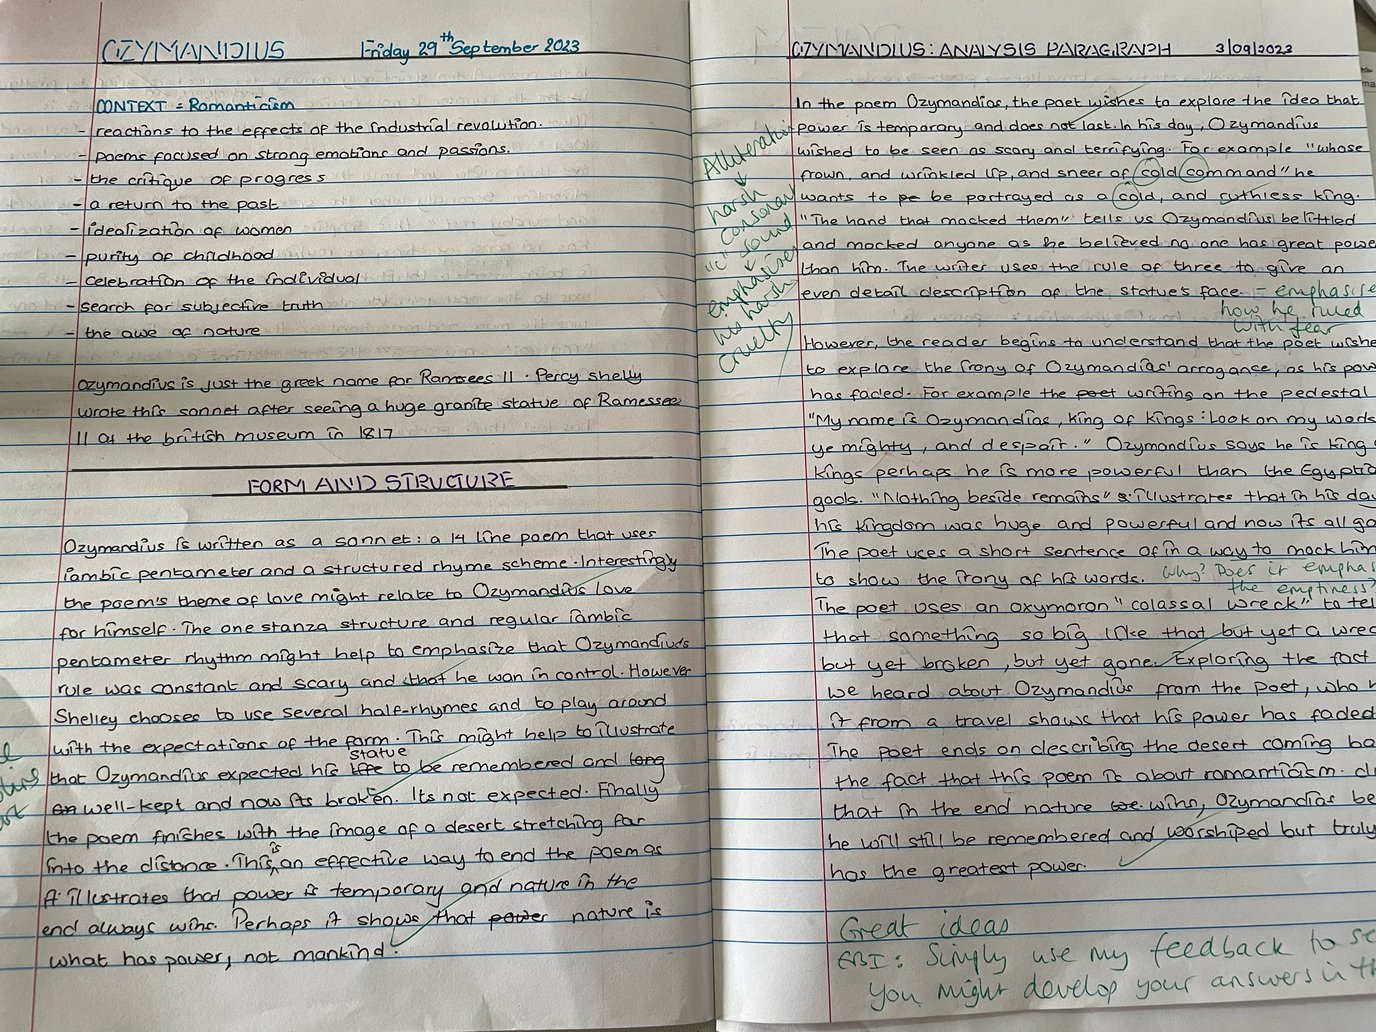 OZYMANDIUS Friday 29th September 2023
CONTEXT = Romanticism
- reactions to the effects of the industrial revolution.
- poems focused on strong emotions and passions.
- the critique of progress
- a return to the past
- idealization of women
- purity of childhood
- celebration of the individual
- search for subjective truth
- the awe of nature
Ozymandius is just the greek name for Ramsees II. Percy Shelly
wrote this sonnet after seeing a huge granite statue of Ramesses
II at the british museum in 1817
FORM AND STRUCTURE
Ozymandius is written as a sonnet: a 14 line poem that uses
iambic pentameter and a structured rhyme scheme. Interestingly
the poem's theme of love might relate to Ozymandius love
for himself. The one stanza structure and regular iambic
pentameter rhythm might help to emphasize that Ozymandius
rule was constant and scary and that he wan in control. However
Shelley chooses to use several half-rhymes and to play around
with the expectations of the form. This might help to illustrate
that Ozymandius expected his life statue to be remembered and long
an well-kept and now its broken. Its not expected. Finally
the poem finishes with the image of a desert stretching far
into the distance. This is an effective way to end the poem as
it illustrates that power is temporary and nature in the
end always wins. Perhaps it shows that power nature is
what has power, not mankind.
OZYMANDIUS: ANALYSIS PARAGRAPH 3/09/2023
In the poem Ozymandias, the poet wishes to explore the idea that
power is temporary and does not last. In his day, Ozymandius
wished to be seen as scary and terrifying. For example "whose
frown, and wrinkled lip, and sneer of cold command" he
wants to pe be portrayed as a cold, and ruthless king.
"The hand that mocked them" tells us Ozymandius belittled
and mocked anyone as he believed no one has great powe
than him. The writer uses the rule of three to give an
even detail description of the statue's face. = emphasise
how he ruled
with fear
Alliteration
harsh
consonant
"c" sound
emphasises
his harsh
cruelty
However, the reader begins to understand that the poet wishe
to explore the irony of Ozymandias' arrogance, as his pow
has faded. For example the poet writing on the pedestal
"My name is Ozymandias, King of Kings: Look on my words
ye mighty, and despair." Ozymandius says he is king
kings perhaps he is more powerful than the Egyptia
gods. "Nothing beside remains" illustrates that in his day
his kingdom was huge and powerful and now its all go
The poet uses a short sentence of in a way to mock him
to show the irony of his words. Why? Does it emphas
the emptiness?
The poet uses an oxymoron "colassal wreck" to tel
that something so big like that but yet a wrec
but yet broken, but yet gone. Exploring the fact
we heard about Ozymandius from the poet, who h
it from a travel shows that his power has faded
The poet ends on describing the desert coming ba
the fact that this poem is about romanticism.
that in the end nature wins, Ozymandias be
he will still be remembered and worshiped but truly
has the greatest power.
Great ideas
EBI: Simply use my feedback to se
you might develop your answers in th